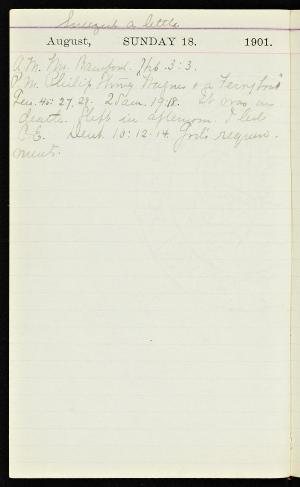 a little
August, SUNDAY 18. 1901.
A.M. Mr. Bamford. Heb. 3:3.
P.M. Philip King
Jas. 4: 27, 28. 2 Sam. 19:18. It was on
death. Slept in afternoon. I led
C.E. Deut. 10:12-14. God's require-
ments.